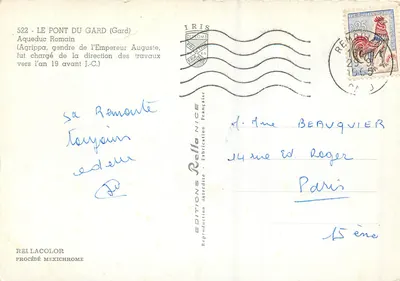 522 - LE PONT DU GARD (Gard)
Aqueduc Romain
(Agrippa, gendre de l'Empereur Auguste,
fut chargé de la direction des travaux
vers l'an 19 avant J.-C.)
IRIS
REMO
1965
GARD
sa Remonte
toujours
Mme BEAUQUIER
14 rue Ed Roger
Paris
15ème
EDITIONS Rella NICE
Reproduction interdite - Fabrication française
RELLACOLOR
PROCÉDÉ MEXICHROME